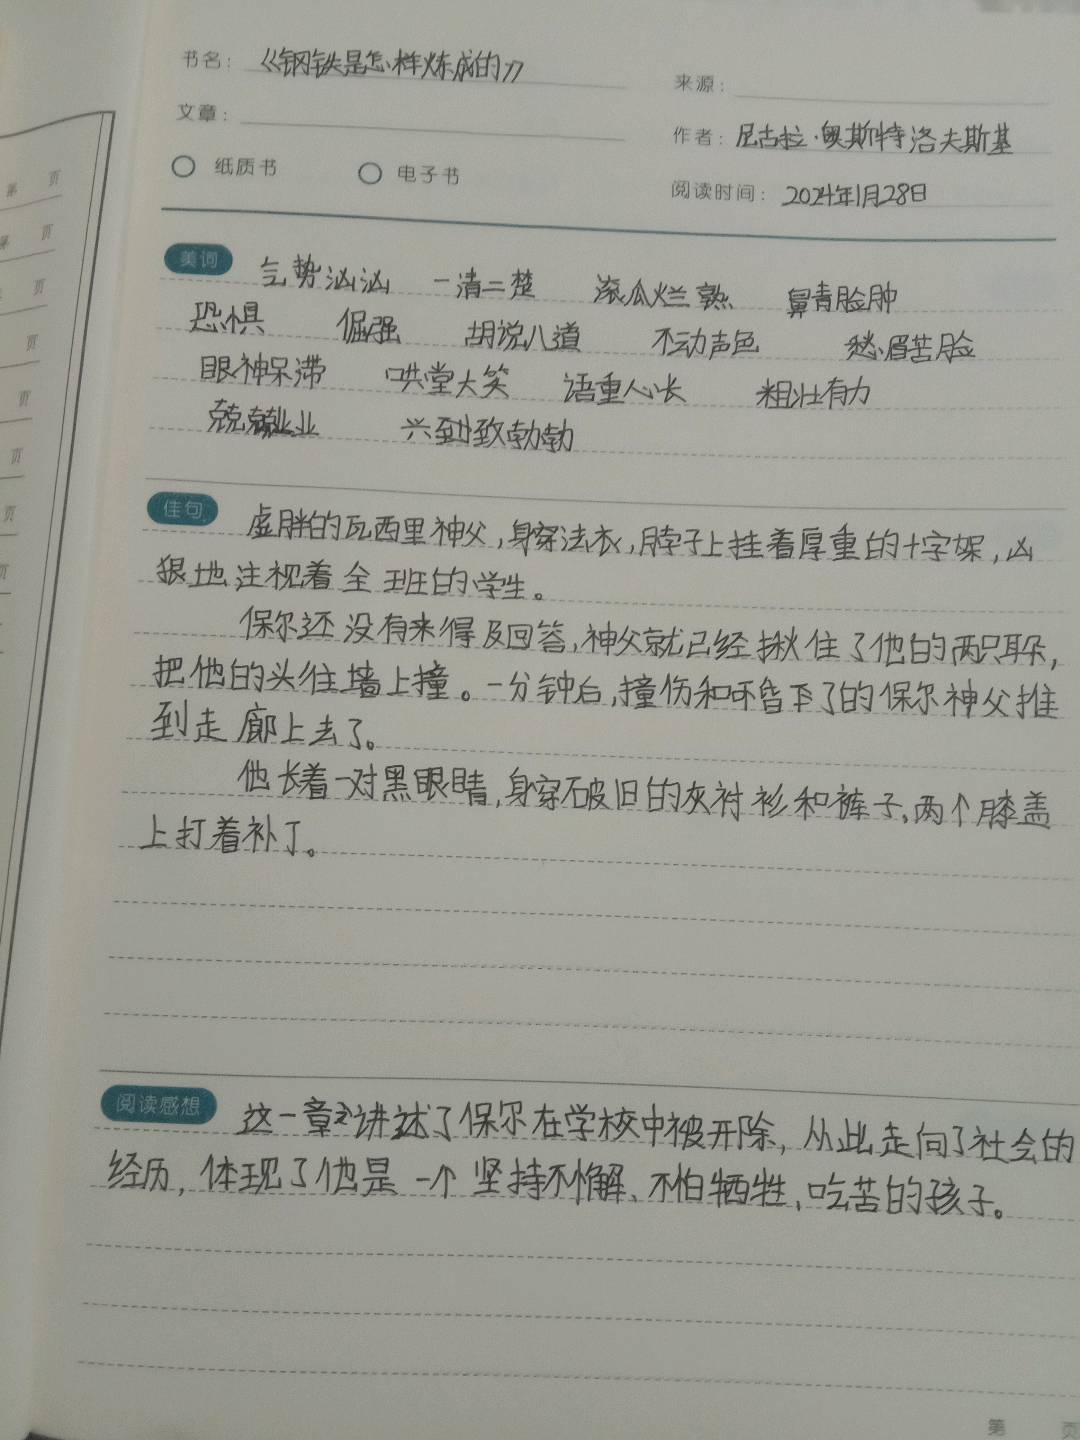 书名：《钢铁是怎样炼成的》
来源：
文章：
作者：尼古拉·奥斯特洛夫斯基
纸质书 电子书
阅读时间：2024年1月28日
美词 气势汹汹 一清二楚 滚瓜烂熟 鼻青脸肿
恐惧 倔强 胡说八道 不动声色 愁眉苦脸
眼神呆滞 哄堂大笑 语重心长 粗壮有力
兢兢业业 兴致勃勃
佳句 虚胖的瓦西里神父，身穿法衣，脖子上挂着厚重的十字架，凶
狠地注视着全班的学生。
保尔还没有来得及回答，神父就已经揪住了他的两只耳朵，
把他的头往墙上撞。一分钟后，撞伤和吓昏了的保尔神父推
到走廊上去了。
他长着一对黑眼睛，身穿破旧的灰衬衫和裤子，两个膝盖
上打着补丁。
阅读感想 这一章讲述了保尔在学校中被开除，从此走向了社会的
经历，体现了他是一个坚持不懈、不怕牺牲、吃苦的孩子。
第 页
第 页
第 页
页
页
页
页
页
页